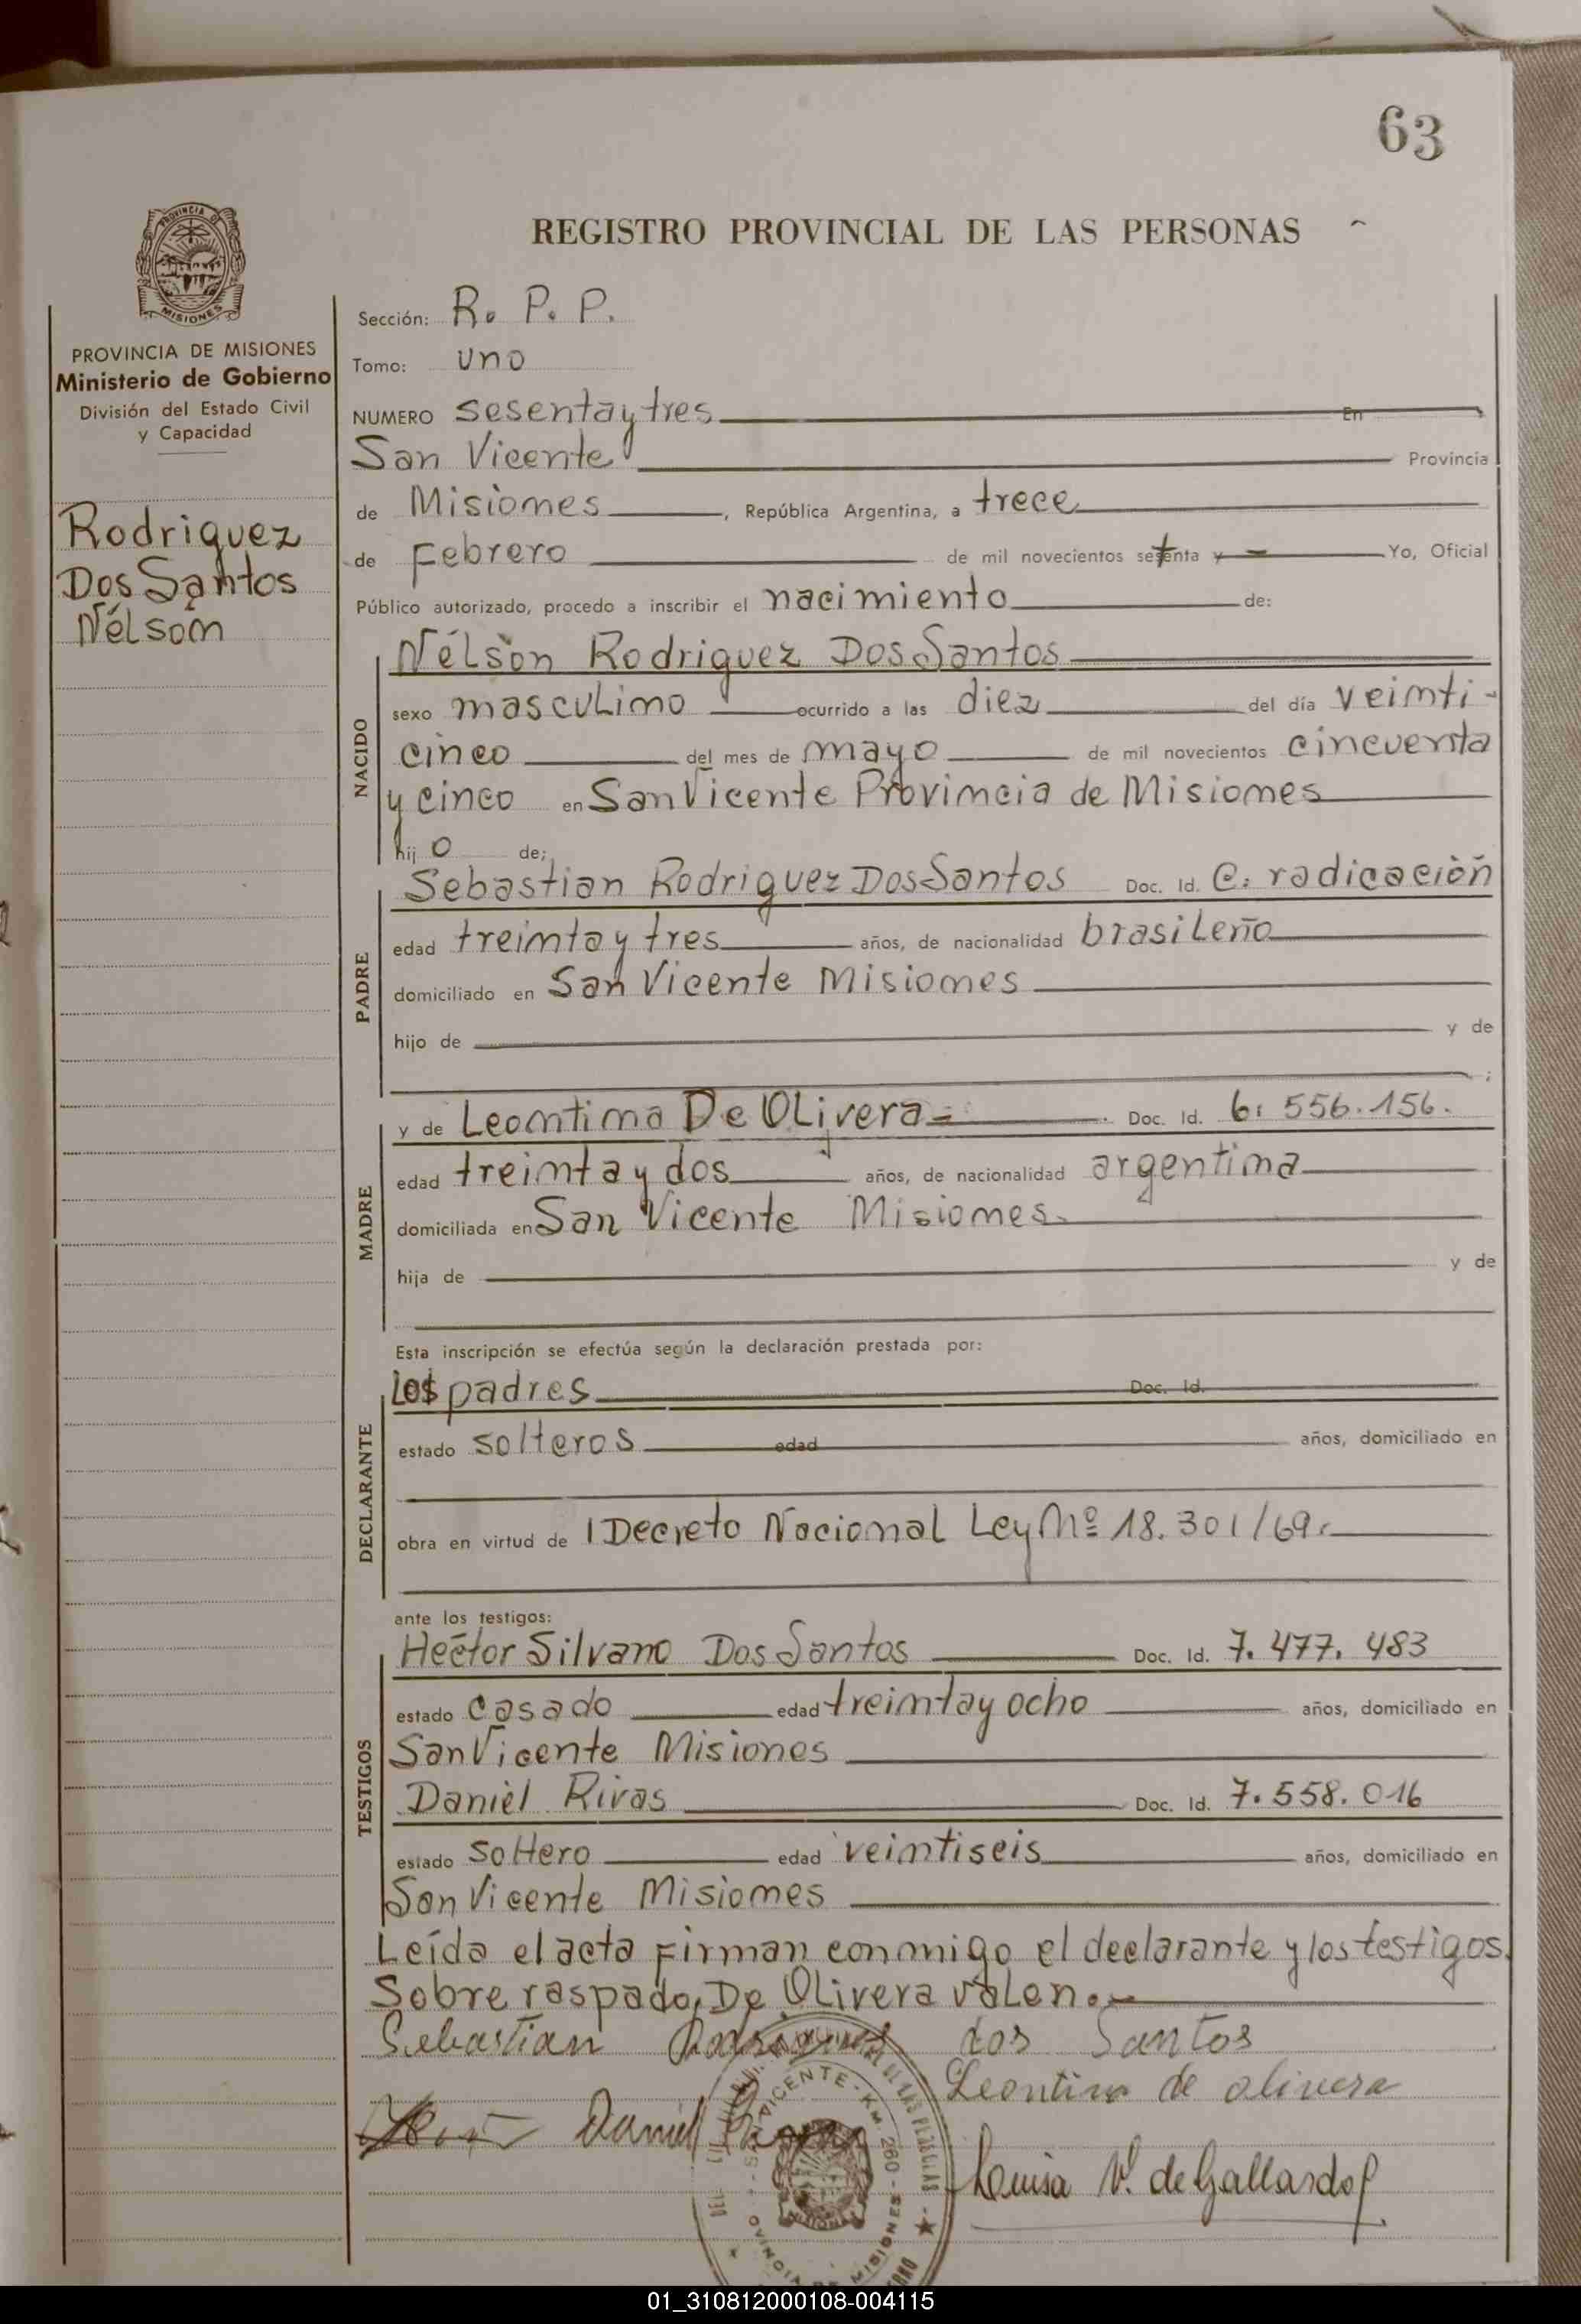 63
REGISTRO PROVINCIAL DE LAS PERSONAS
PROVINCIA DE MISIONES
PROVINCIA DE MISIONES
Ministerio de Gobierno
División del Estado Civil
y Capacidad
Rodriguez
Dos Santos
Nélson
Sección: R. P. P.
Tomo: uno
NUMERO sesenta y tres En
San Vicente Provincia
de Misiones, República Argentina, a trece
de Febrero de mil novecientos setenta y - Yo, Oficial
Público autorizado, procedo a inscribir el nacimiento de:
NACIDO
Nélson Rodriguez Dos Santos
sexo masculino ocurrido a las diez del día veinti-
cinco del mes de mayo de mil novecientos cincuenta
y cinco en San Vicente Provincia de Misiones
hijo de;
PADRE
Sebastian Rodriguez Dos Santos Doc. Id. C: radicación
edad treinta y tres años, de nacionalidad brasileño
domiciliado en San Vicente Misiones
hijo de y de
;
MADRE
y de Leontina De Olivera= Doc. Id. 6. 556.156.
edad treinta y dos años, de nacionalidad argentina
domiciliada en San Vicente Misiones.
hija de y de
Esta inscripción se efectúa según la declaración prestada por:
DECLARANTE
los padres Doc. Id.
estado solteros edad años, domiciliado en
obra en virtud de l Decreto Nacional Ley Nº 18.301/69.
ante los testigos:
TESTIGOS
Héctor Silvano Dos Santos Doc. Id. 7.477.483
estado casado edad treinta y ocho años, domiciliado en
San Vicente Misiones
Daniel Rivas Doc. Id. 7.558.016
estado soltero edad veintiseis años, domiciliado en
San Vicente Misiones
Leída el acta firman conmigo el declarante y los testigos.
Sobre raspado, De Olivera valen.-
Sebastian Rodriguez dos Santos
Leontina de olivera
Daniel Rivas
Luisa V. de Gallardo
SAN VICENTE - KM. 260 - MISIONES
01_310812000108-004115